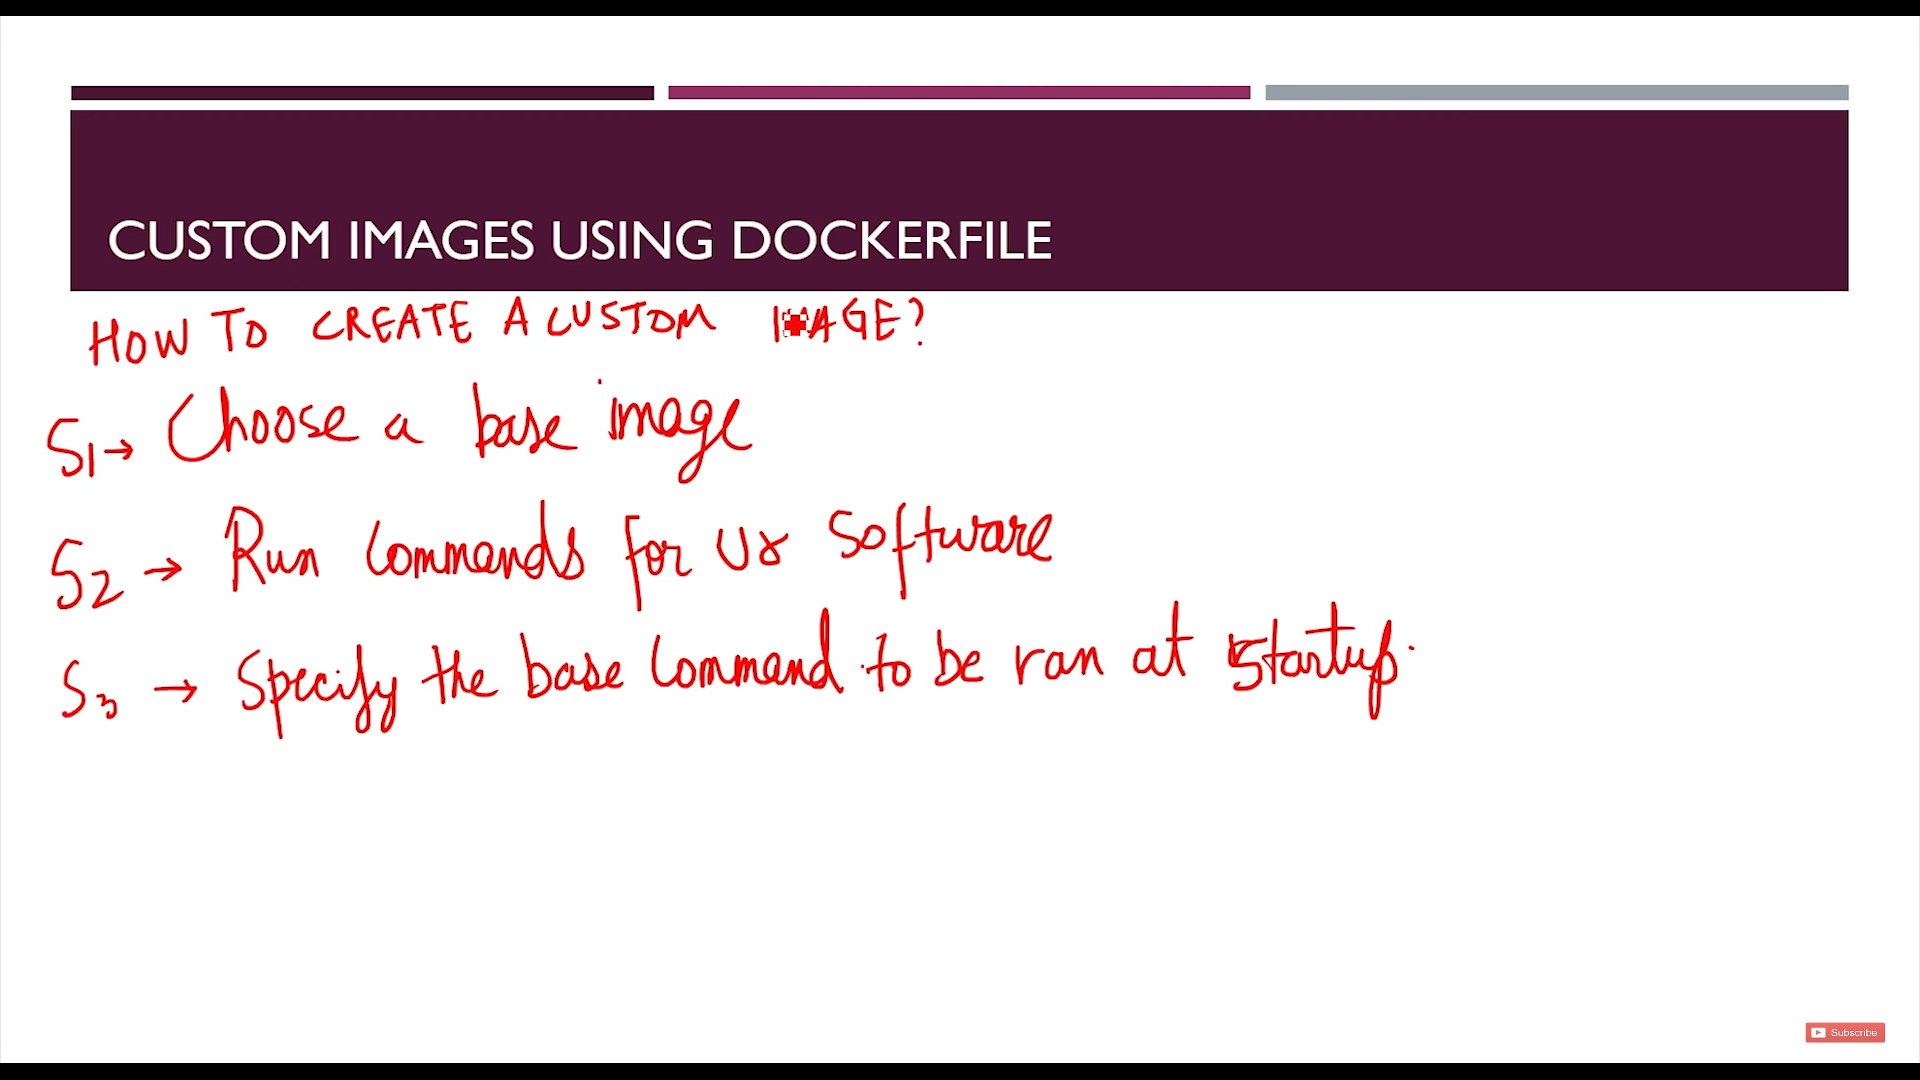 CUSTOM IMAGES USING DOCKERFILE
HOW TO CREATE A CUSTOM IMAGE?
S1→ Choose a base image
S2 → Run Commands for Ur Software
S3 → Specify the base Command to be ran at Startup.
Subscribe